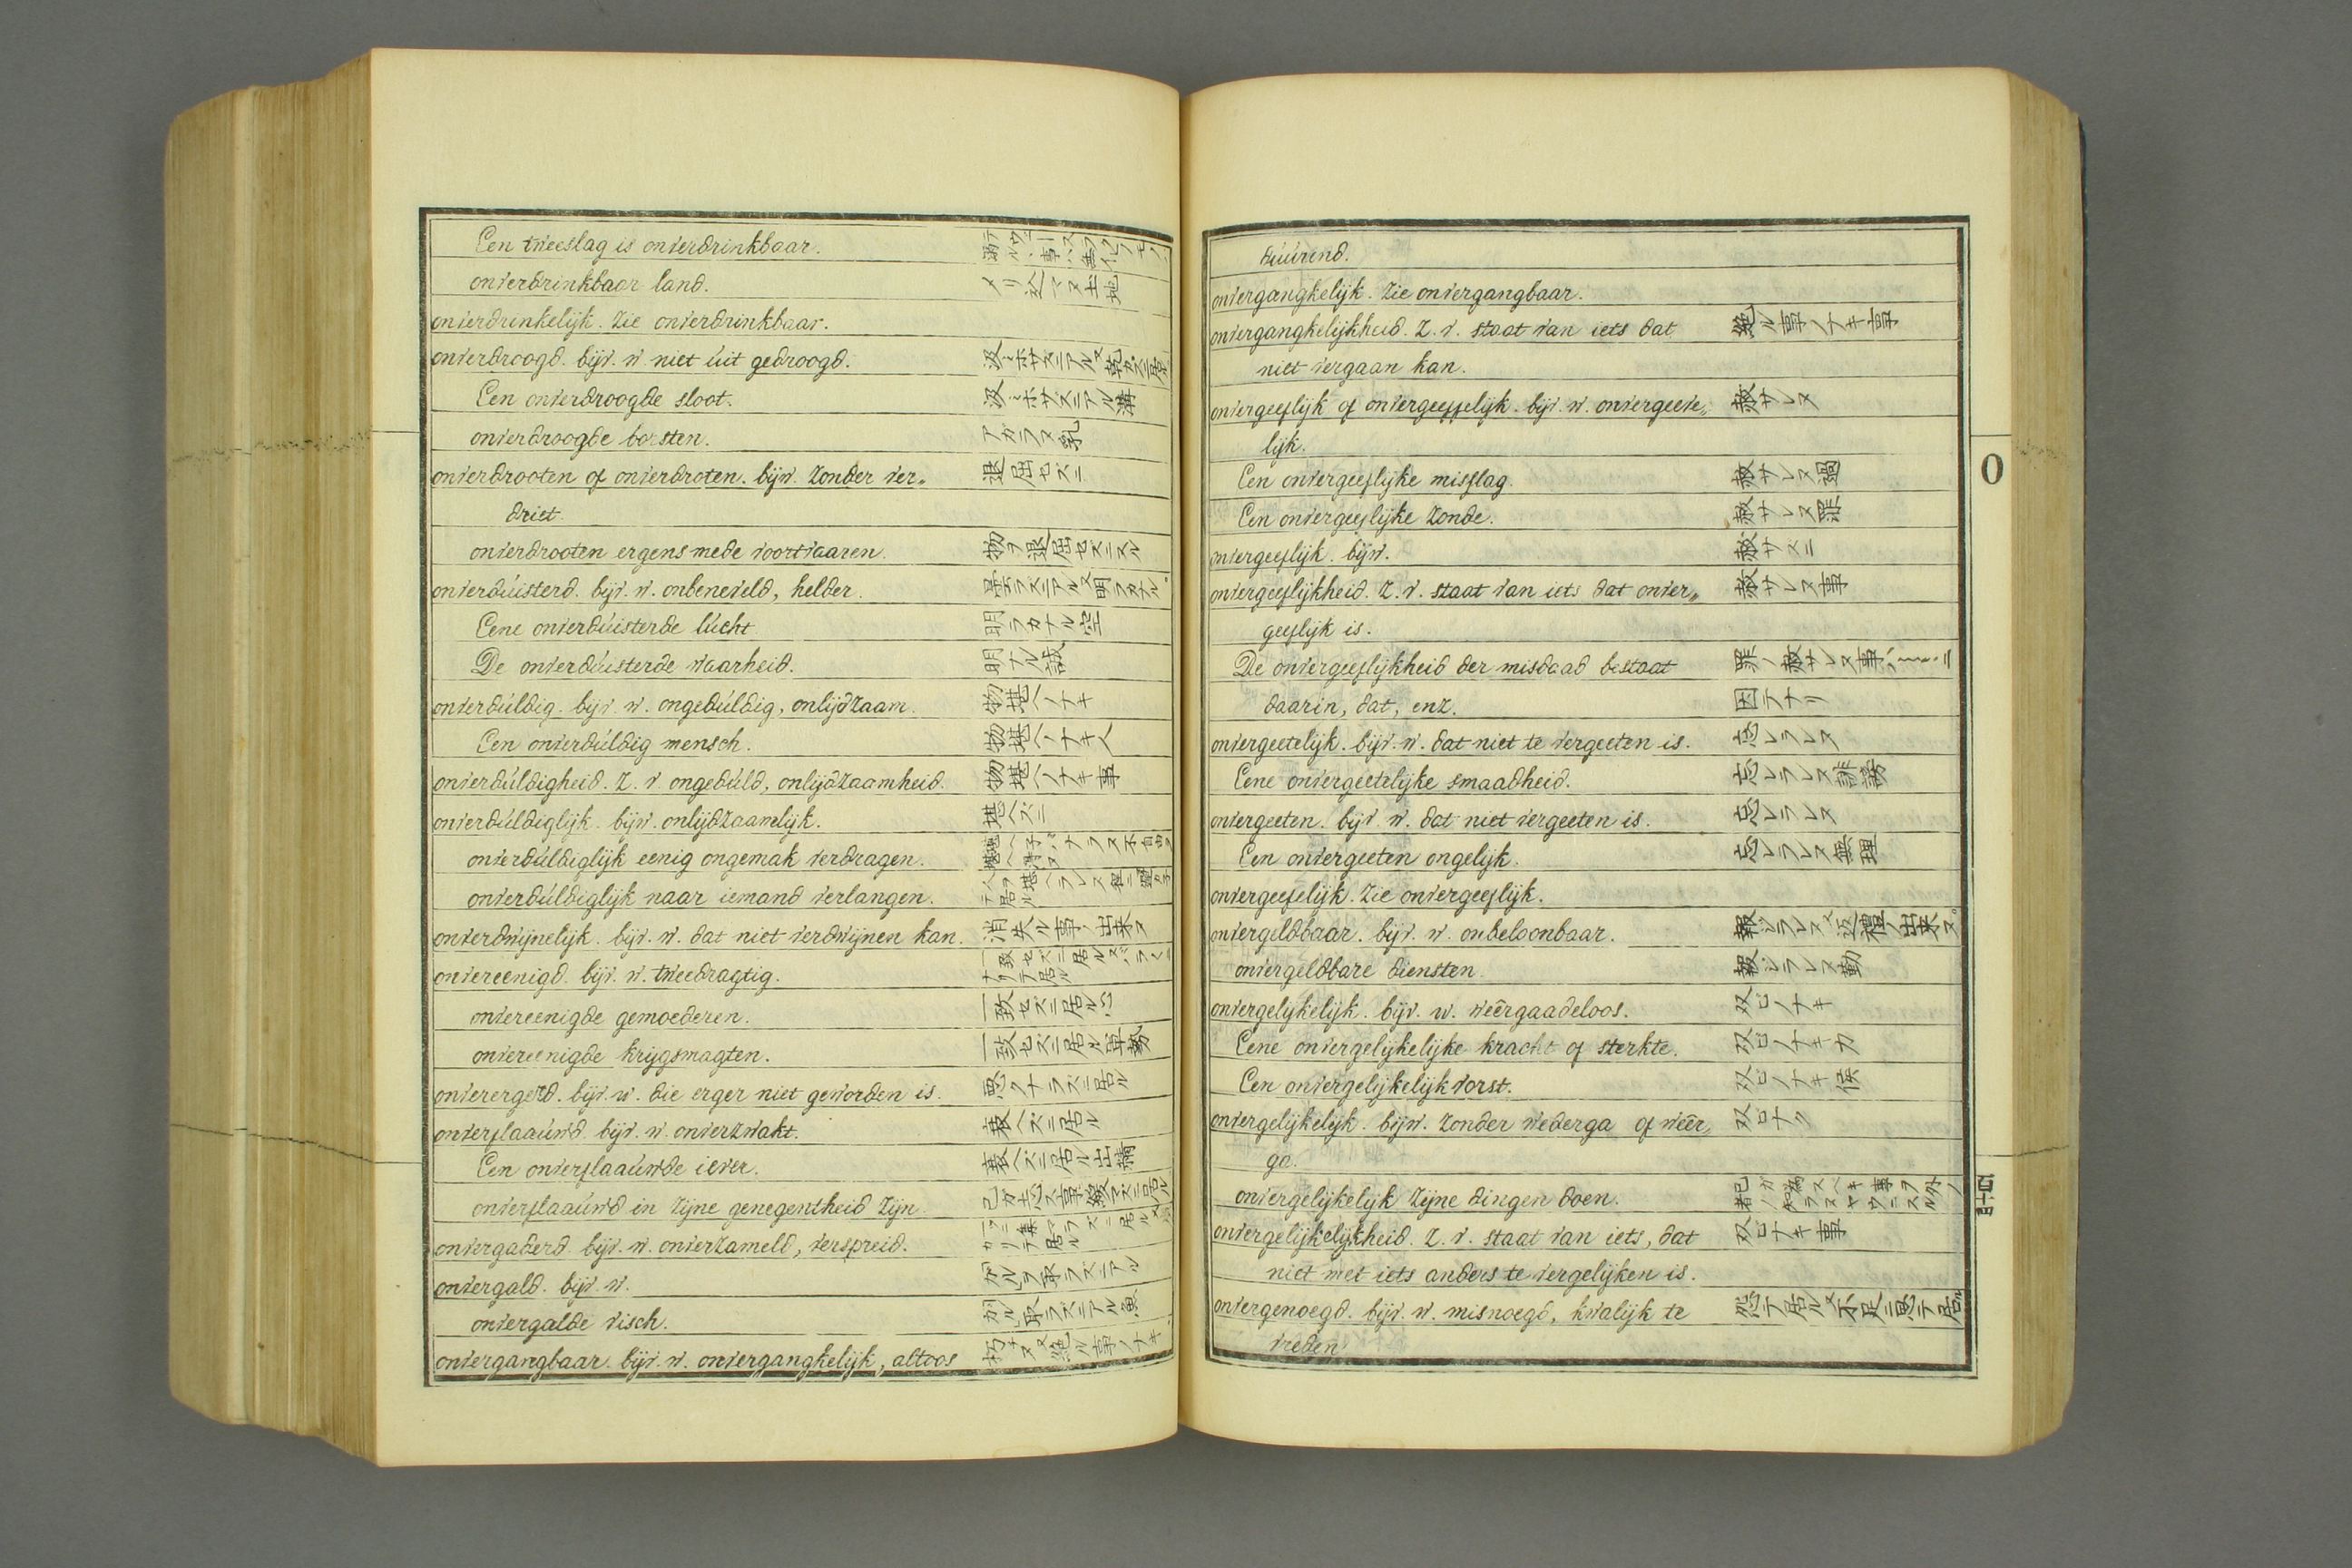 Een tweeslag is onverdrinkbaar.
onverdrinkbaar land. メリ込マヌ土地
onverdrinkelijk. Zie onverdrinkbaar.
onverdroogd. bijv. w. niet úit gedroogd. 汲ミホサズニアル
Een onverdroogde sloot. 汲ミホサズニアル溝
onverdroogde borsten. アガラヌ乳
onverdrooten of onverdroten. bijw. Zonder ver„ 退屈セズニ
driet.
onverdrooten ergens mede voortvaaren. 物ヲ退屈セズニスル
onverdúisterd. bijv. w. onbeneveld, helder. 曇ラズニアル又明ラカナル
Eene onverdúisterde lúcht. 明ラカナル空
De onverdúisterde waarheid. 明ナル誠
onverdúldig. bijv. w. ongedúldig, onlijdzaam. 物堪ヘノナキ
Een onverdúldig mensch. 物堪ヘノナキ人
onverdúldigheid. Z. v. ongedúld, onlijdzaamheid. 物堪ヘノナキ事
onverdúldiglijk. bijw. onlijdzaamlijk. 堪ヘズニ
onverdúldiglijk eenig ongemak verdragen.
onverdúldiglijk naar iemand verlangen.
onverdwijnelijk. bijv. w. dat niet verdwijnen kan. 消失ル事ノ出来ヌ
onvereenigd. bijv. w. tweedragtig. 一致セズニ居ル
onvereenigde gemoederen. 一致セズニ居ル心
onvereenigde krijgsmagten. 一致セズニ居ル軍勢
onverergerd. bijv. w. die erger niet geworden is. 悪クナラズニ居ル
onverflaaúwd. bijv. w. onverzwakt. 衰ヘズニ居ル
Een onverflaaúwde iever. 衰ヘズニ居ル出精
onverflaaúwd in zijne genegentheid zijn.
onvergaderd. bijv. w. onverzameld, verspreid.
onvergald. bijv. w. ガルヲ取ラズニアル
onvergalde visch. ガル取ラズニアル魚
onvergangbaar. bijv. w. onvergangkelijk, altoos 朽チヌ又絶ル事ノナキ
dúúrend.
onvergangkelijk. Zie onvergangbaar.
onvergangkelijkheid. Z. v. staat van iets dat 絶ル事ノナキ事
niet vergaan kan.
onvergeeflijk of onvergeeffelijk. bijv. w. onvergeeve„ 赦サレヌ
lijk.
Een onvergeeflijke misslag. 赦サレヌ過
Een onvergeeflijke Zonde. 赦サレヌ罪
onvergeeflijk. bijw. 赦サズニ
onvergeeflijkheid. Z. v. staat van iets dat onver„ 赦サレヌ事
geeflijk is.
De onvergeeflijkheid der misdaad bestaat 罪ノ赦サレヌ事ハ……ニ
daarin, dat, enz. 因テナリ
onvergeetelijk. bijv. w. dat niet te vergeeten is. 忘レラレヌ
Eene onvergeetelijke smaadheid. 忘レラレヌ誹謗
onvergeeten. bijv. w. dat niet vergeeten is. 忘レラレヌ
Een onvergeeten ongelijk. 忘レラレヌ無理
onvergeefelijk. Zie onvergeeflijk.
onvergeldbaar. bijv. w. onbeloonbaar. 報ジラレヌ又返禮ノ出来ヌ
onvergeldbare diensten. 報ジラレヌ勤
onvergelijkelijk. bijv. w. weêrgaadeloos. 双ビノナキ
Eene onvergelijkelijke kracht of sterkte. 双ビノナキ力
Een onvergelijkelijk vorst. 双ビノナキ侯
onvergelijkelijk. bijw. zonder wederga of weêr„ 双ビナク
ga.
onvergelijkelijk zijne dingen doen.
onvergelijkelijkheid. Z. v. staat van iets, dat 双ビナキ事
niet met iets anders te vergelijken is.
onvergenoegd. bijv. w. misnoegd, kwalijk te 怨テ居ル又不足ニ思テ居ル
vreden
O